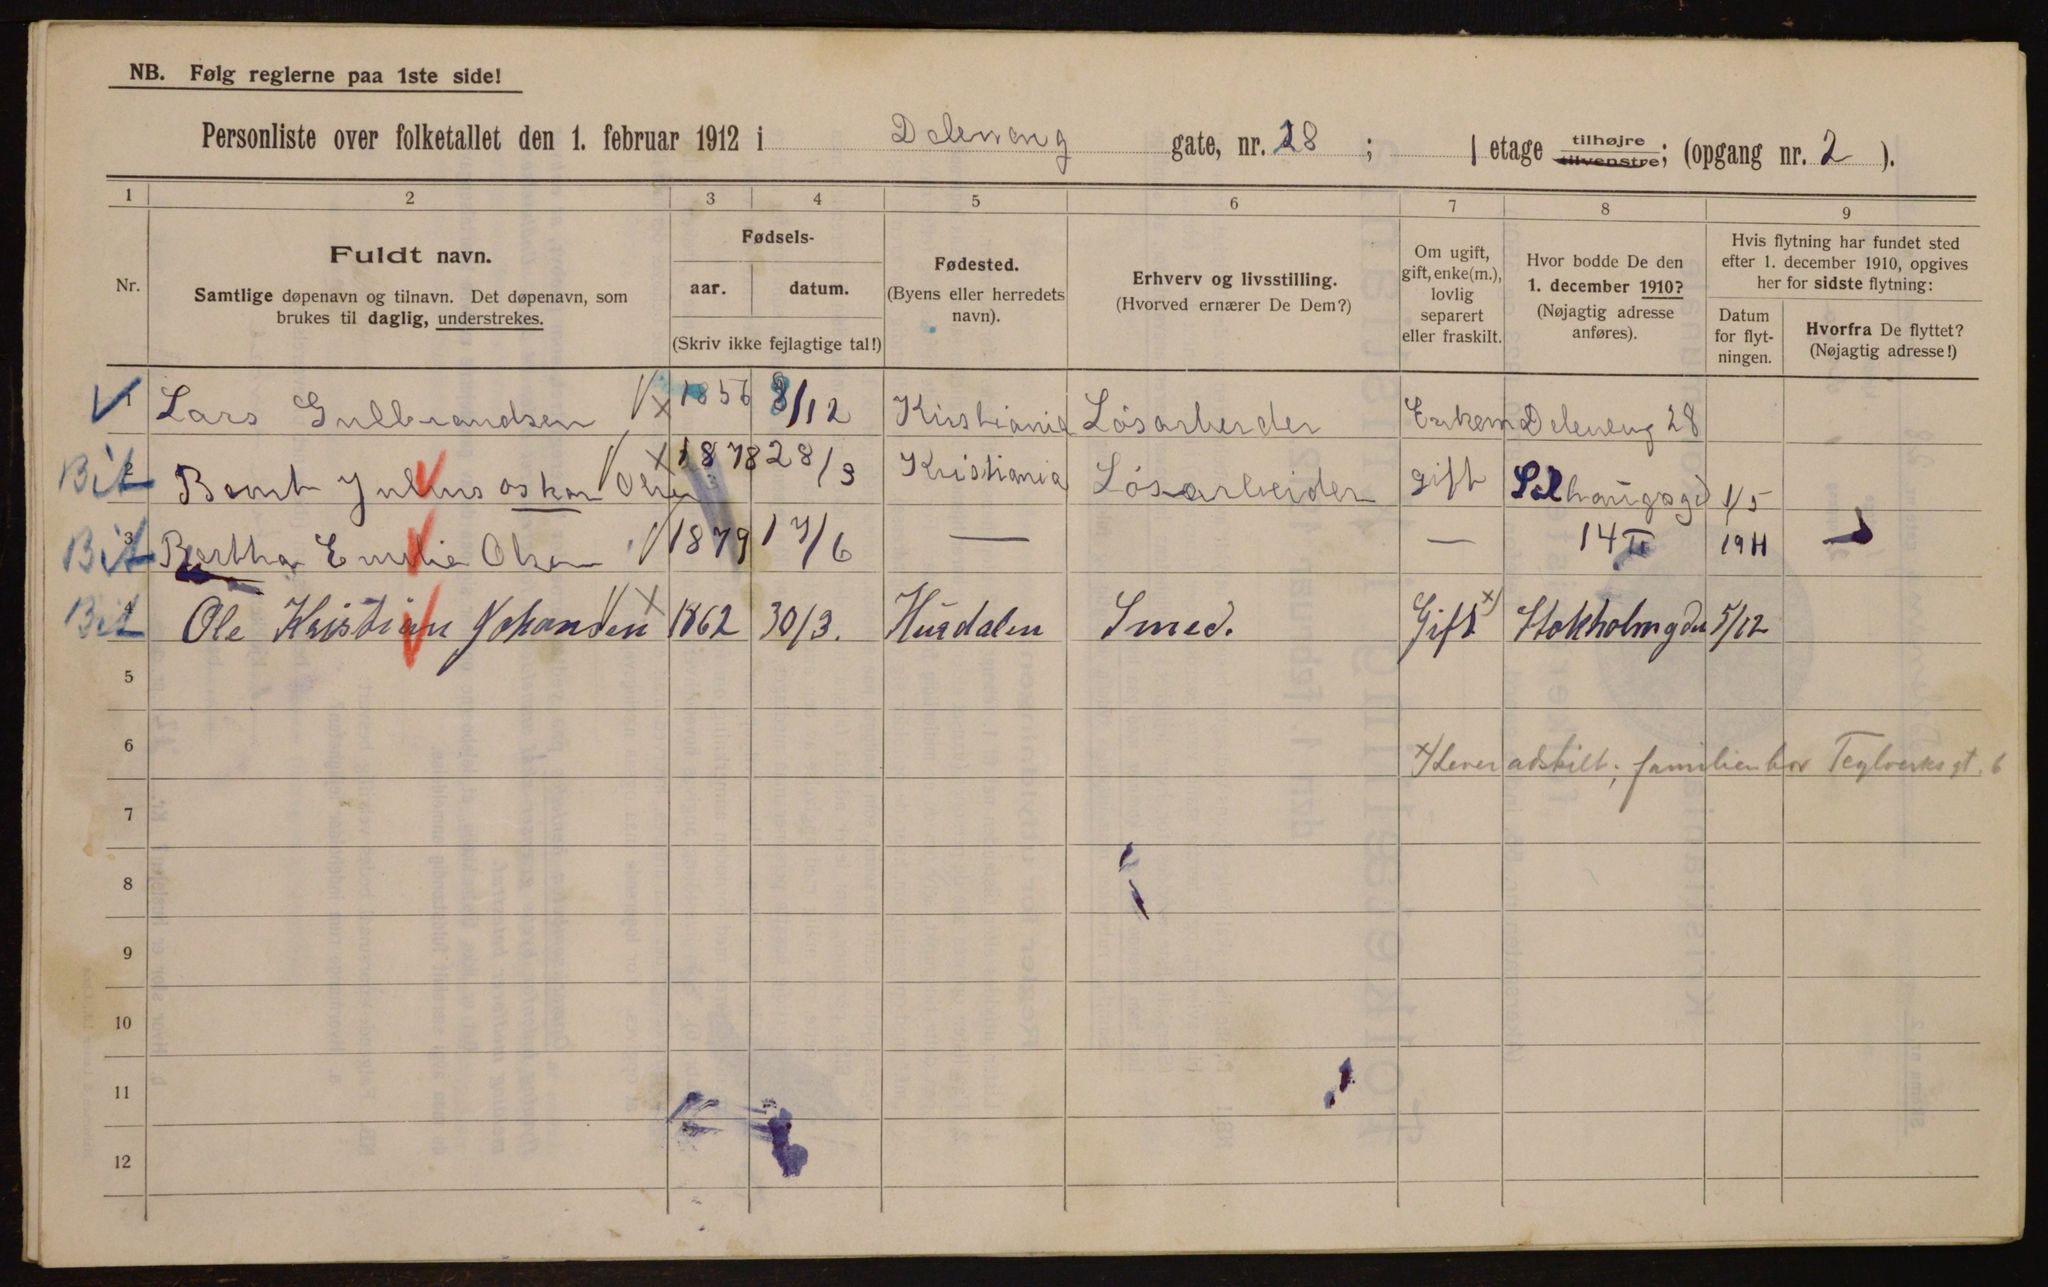 NB. Følg reglerne paa 1ste side!
Personliste over folketallet den 1. februar 1912 i Deleneng gate, nr. 28 ; 1 etage tilhøjre tilvenstre; (opgang nr. 2 ).
1 2 3 4 5 6 7 8 9
Nr.
Fuldt navn.
Samtlige døpenavn og tilnavn. Det døpenavn, som
brukes til daglig, understrekes.
Fødsels-
aar. datum.
(Skriv ikke fejlagtige tal!)
Fødested.
(Byens eller herredets
navn).
Erhverv og livsstilling.
(Hvorved ernærer De Dem?)
Om ugift,
gift, enke(m.),
lovlig
separert
eller fraskilt.
Hvor bodde De den
1. december 1910?
(Nøjagtig adresse
anføres).
Hvis flytning har fundet sted
efter 1. december 1910, opgives
her for sidste flytning:
Datum
for flyt-
ningen.
Hvorfra De flyttet?
(Nøjagtig adresse!)
1 Lars Gulbrandsen 1856 8/12 Kristiania Løsarbeider Enkem Deleneng 28
Bit 2 Bernt Julius Oskar Olsen 1878 28/3 Kristiania Løsarbeider gift 1/5
Bit 3 Bertha Emilie Olsen 1879 17/6 — — 14 II 1911
Bit 4 Ole Kristian Johansen 1862 30/3. Hurdalen Smed. Gift x) Stokholmgdn 5/12
5
6
x) Lever adskilt; familien bor Teglverksgt. 6
7
8
9
10
11
12